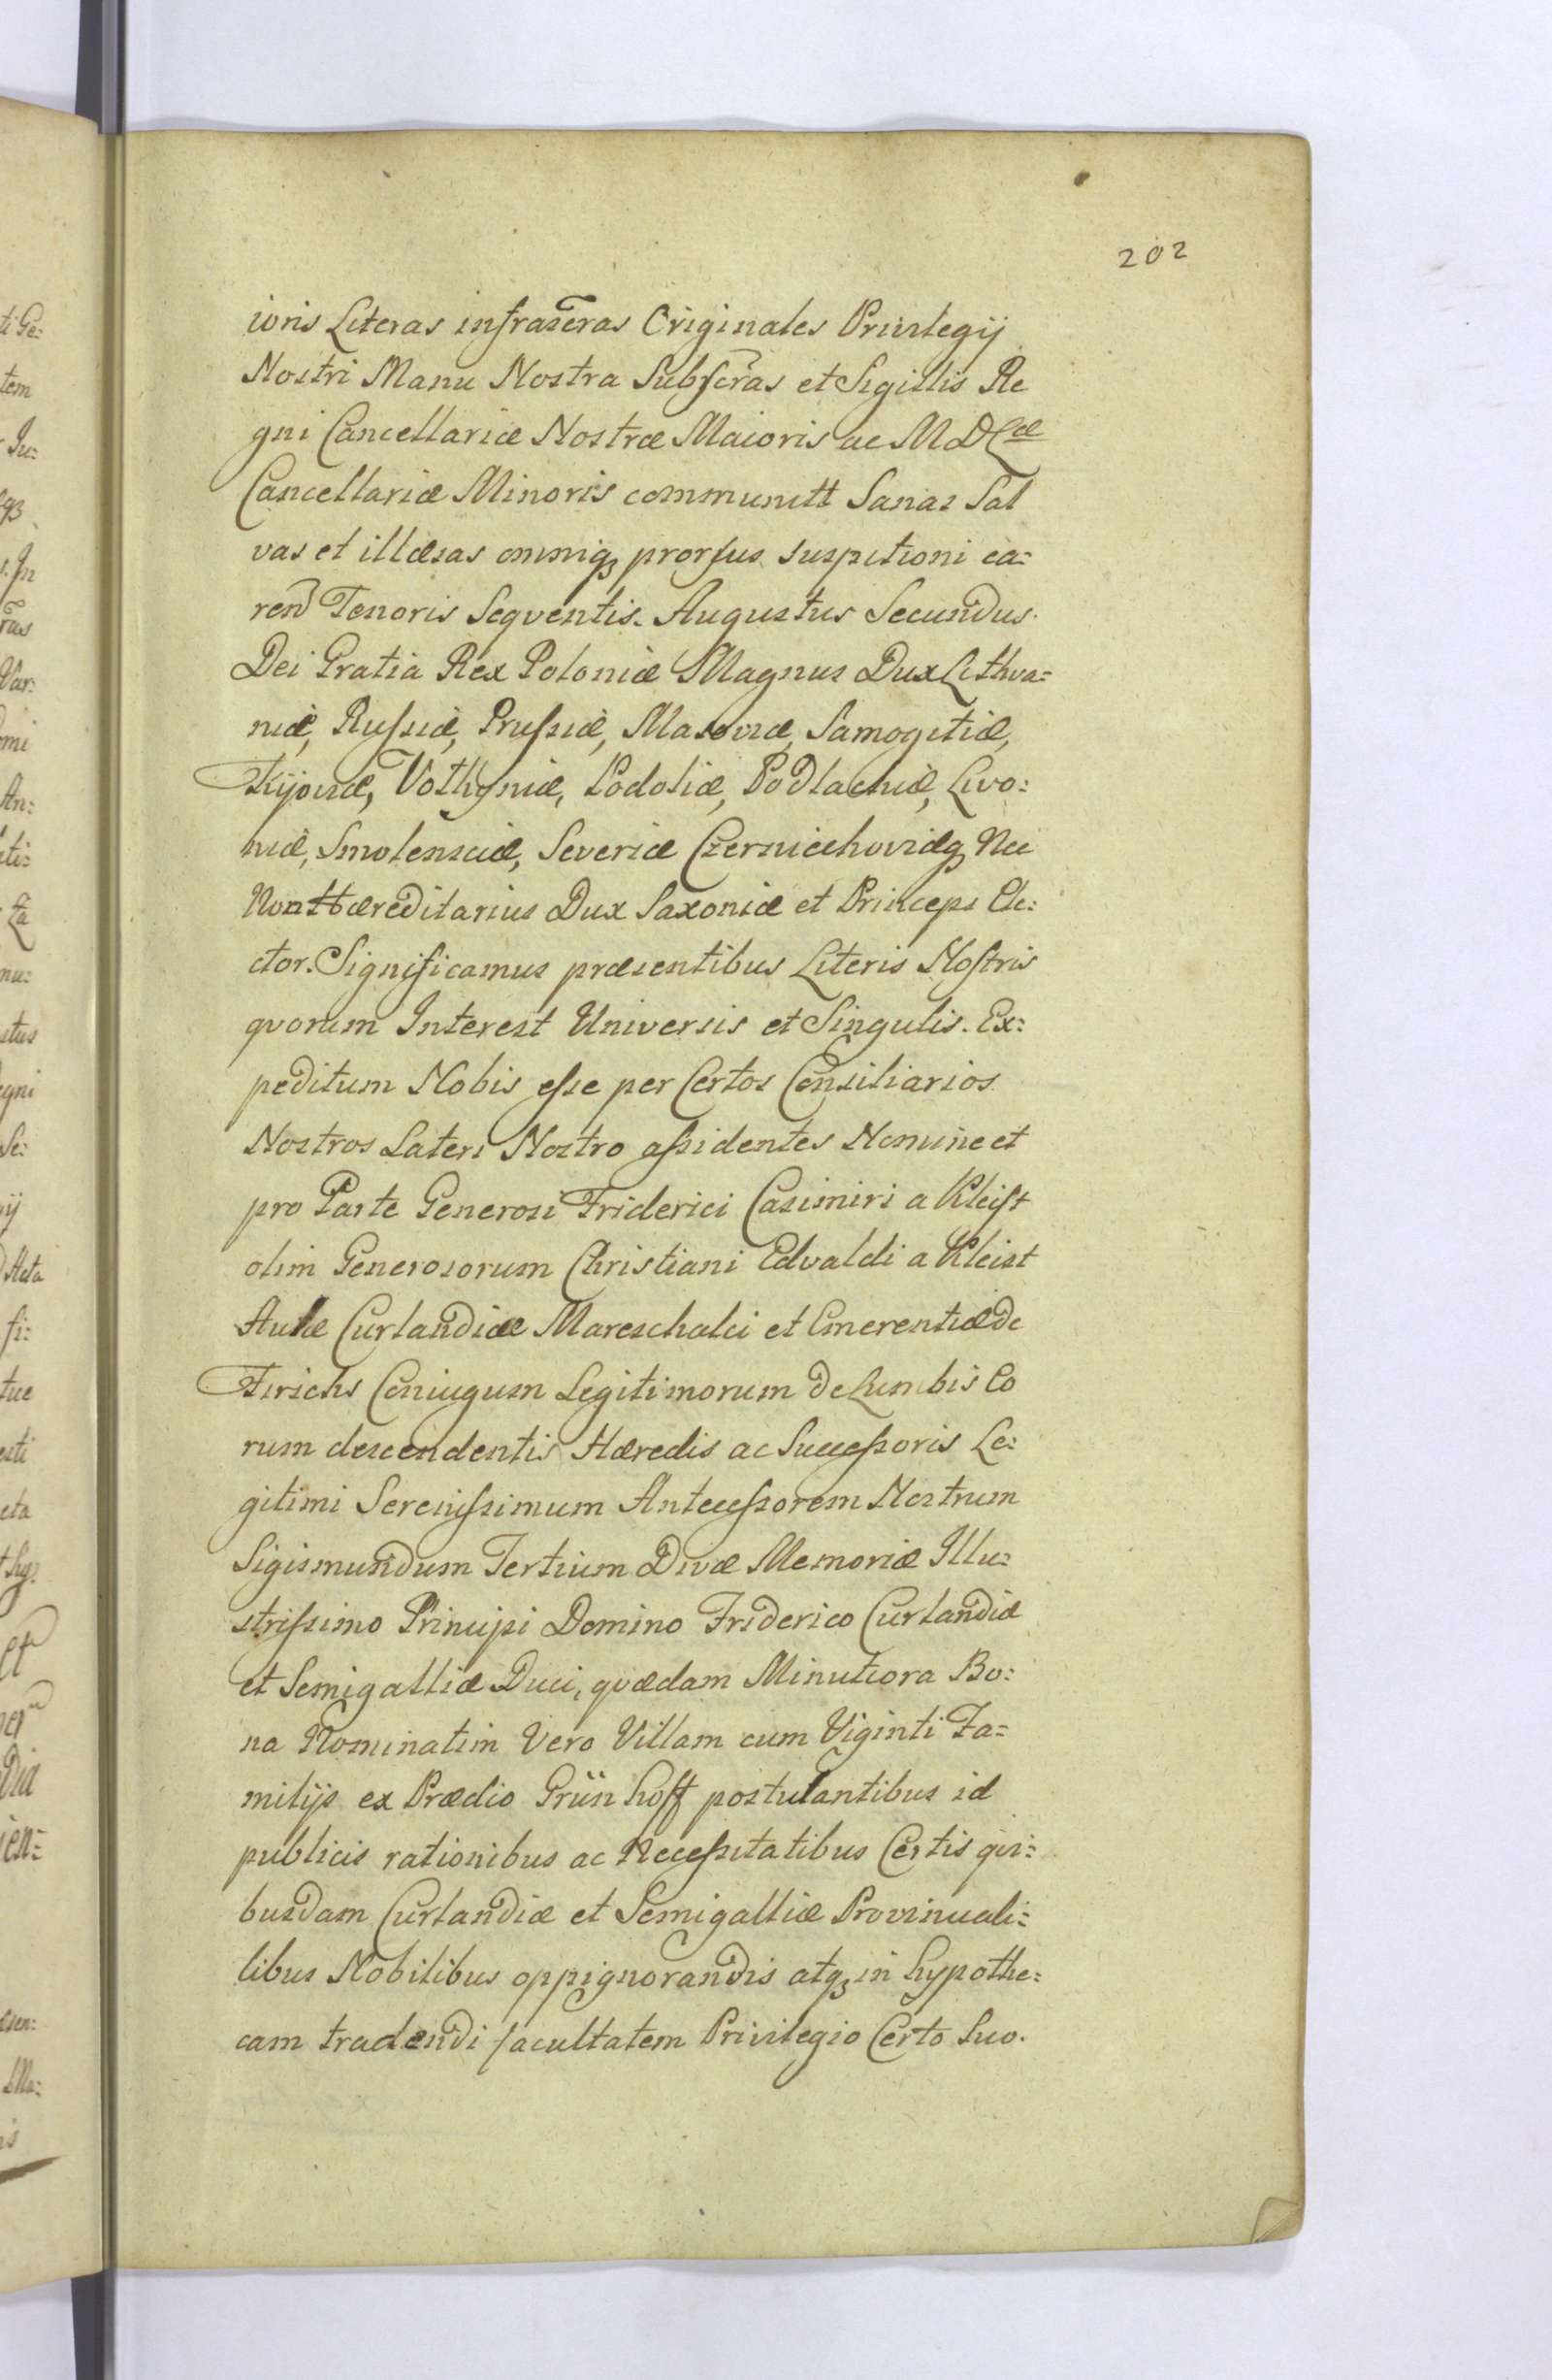 202
ioris Literas infrascr̃as Originales Privilegij
Nostri Manu Nostra Subscr̃as et Sigillis Re
gni Cancellariæ Nostræ Maioris ac M D Lææ
Cancellariæ Minoris communitt Sanas Sal
vas et illæsas omniq3 prorsus suspitioni ca:
ren̄d Tenoris Seqventis. Augustus Secundus.
Dei Gratia Rex Poloniæ Magnus Dux Lithva:
niæ, Russiæ, Prussiæ, Masoviæ, Samogitiæ,
Kijoviæ, Volhyniæ, Podoliæ, Podlachiæ, Livo:
niæ, Smolensciæ, Severiæ Czerniechoviæq3 Nec
Non Hæreditarius Dux Saxoniæ et Princeps Ele:
ctor. Significamus præsentibus Literis Nostris
qvorum Interest Universis et Singulis. Ex:
peditum Nobis esse per Certos Consiliarios
Nostros Lateri Nostro assidentes Nomine et
pro Parte Generosi Friderici Casimiri a Kleist
olim Generosorum Christiani Edvaldi a Kleist
Aulæ Curlandiæ Mareschalci et Emerentiæ de
Firichs Coniugum Legitimorum de Lumbis Eo
rum descendentis Hæredis ac Successoris Le:
gitimi Serenissimum Antecessorem Nostrum
Sigismundum Tertium Divæ Memoriæ Illu:
strissimo Principi Domino Friderico Curlandiæ
et Semigalliæ Duci, qvædam Minutiora Bo:
na Nominatim Vero Villam cum Viginti Fa:
milijs ex Prædio Grünhoff postulantibus id
publicis rationibus ac Necessitatibus Certis qvi:
busdam Curlandiæ et Semigalliæ Provinciali:
libus Nobilibus oppignorandis atq3 in hypothe:
cam tradendi facultatem Privilegio Certo Suo.